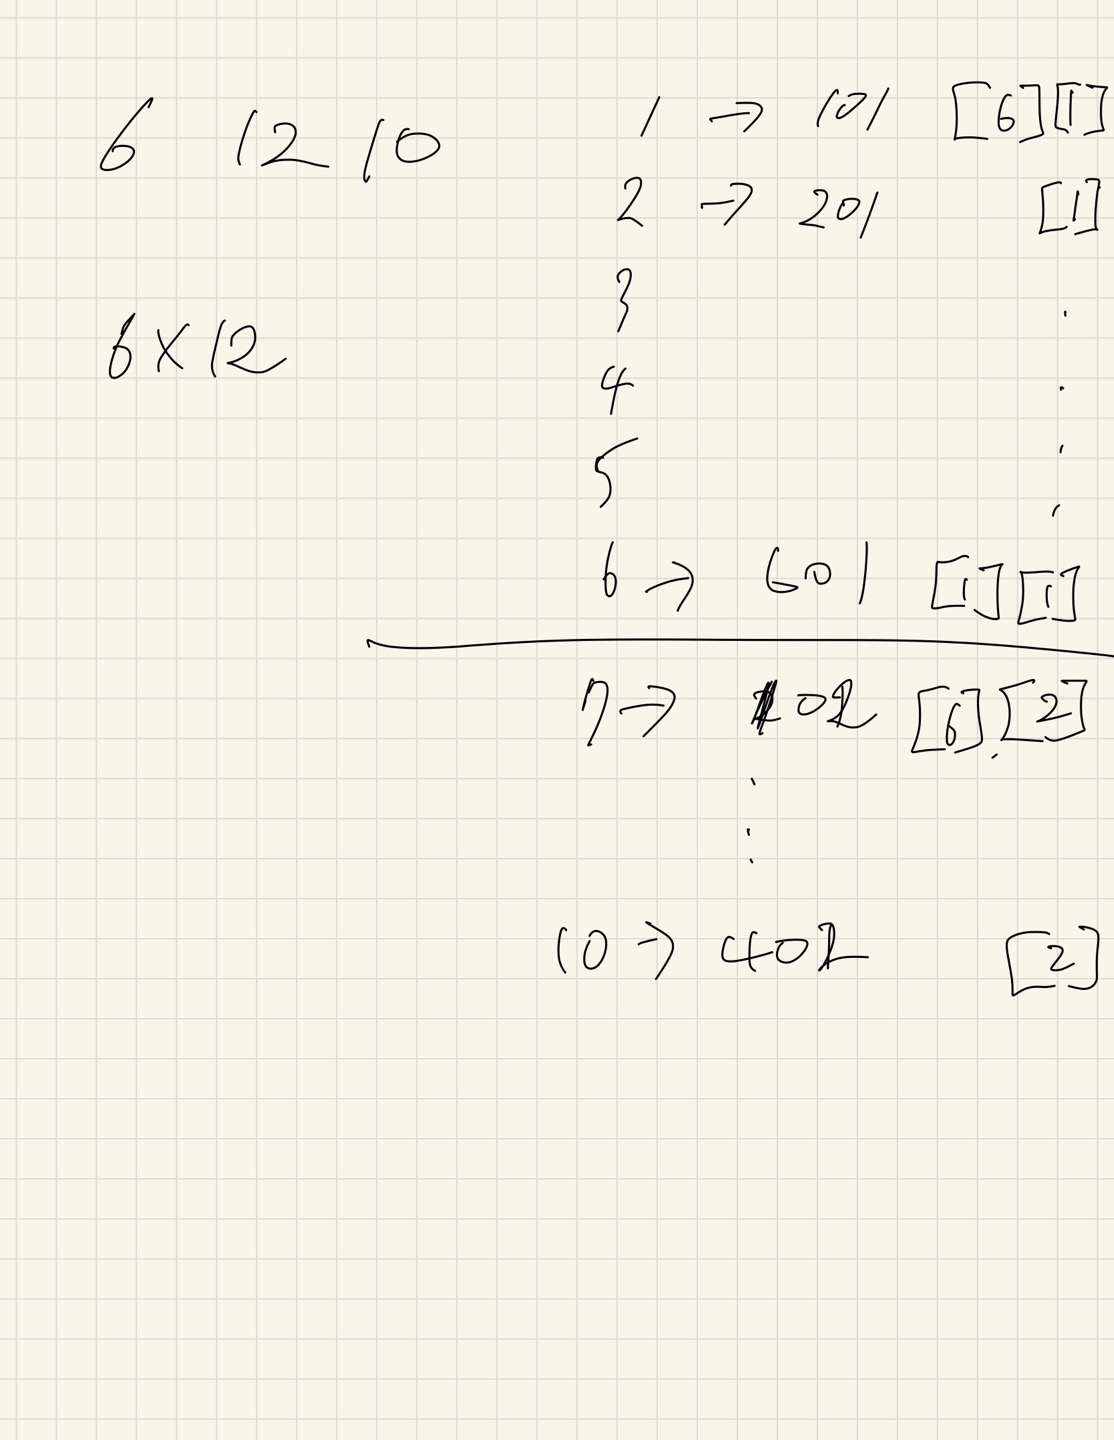 6 12 10
6×12
1 → 101 [6][1]
2 → 201 [1]
3
4
5
6 → 601 [1][1]
7 → 102 [6][2]
10 → 402 [2]